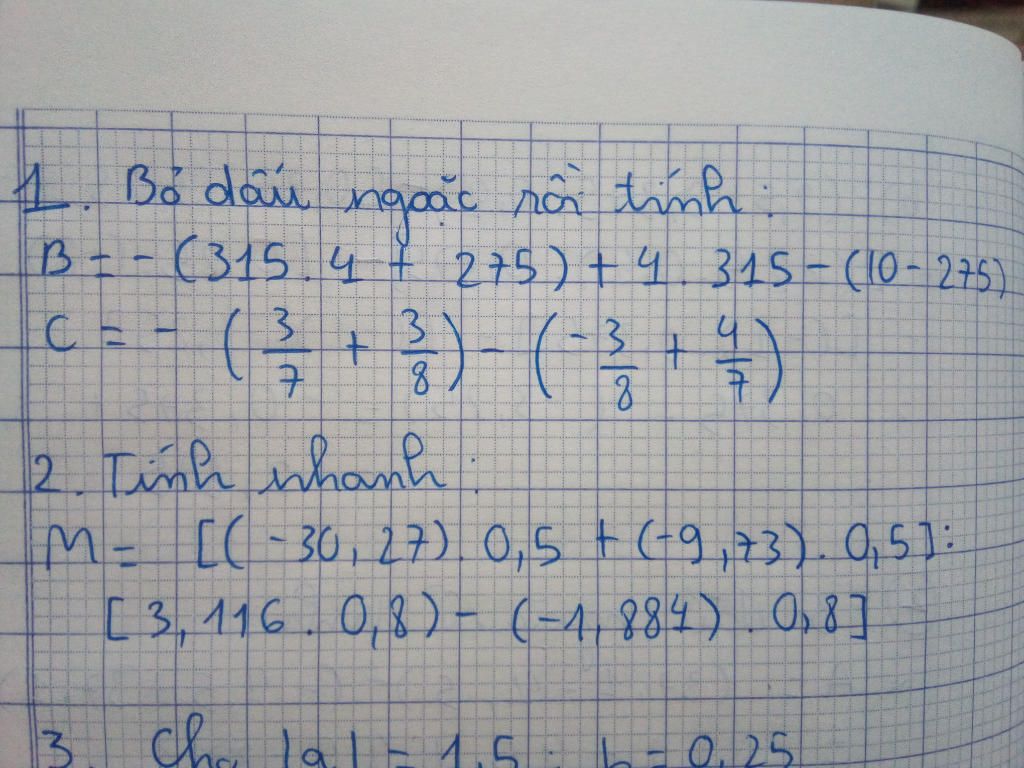 1. Bỏ dấu ngoặc rồi tính:
B = - (315.4 + 275) + 4.315 - (10 - 275)
C = - (3/7 + 3/8) - (-3/8 + 4/7)
2. Tính nhanh:
M = [(-30,27).0,5 + (-9,73).0,5]:
[3,116.0,8) - (-1,884).0,8]
3. Cho |a| = 1,5; b = 0,25